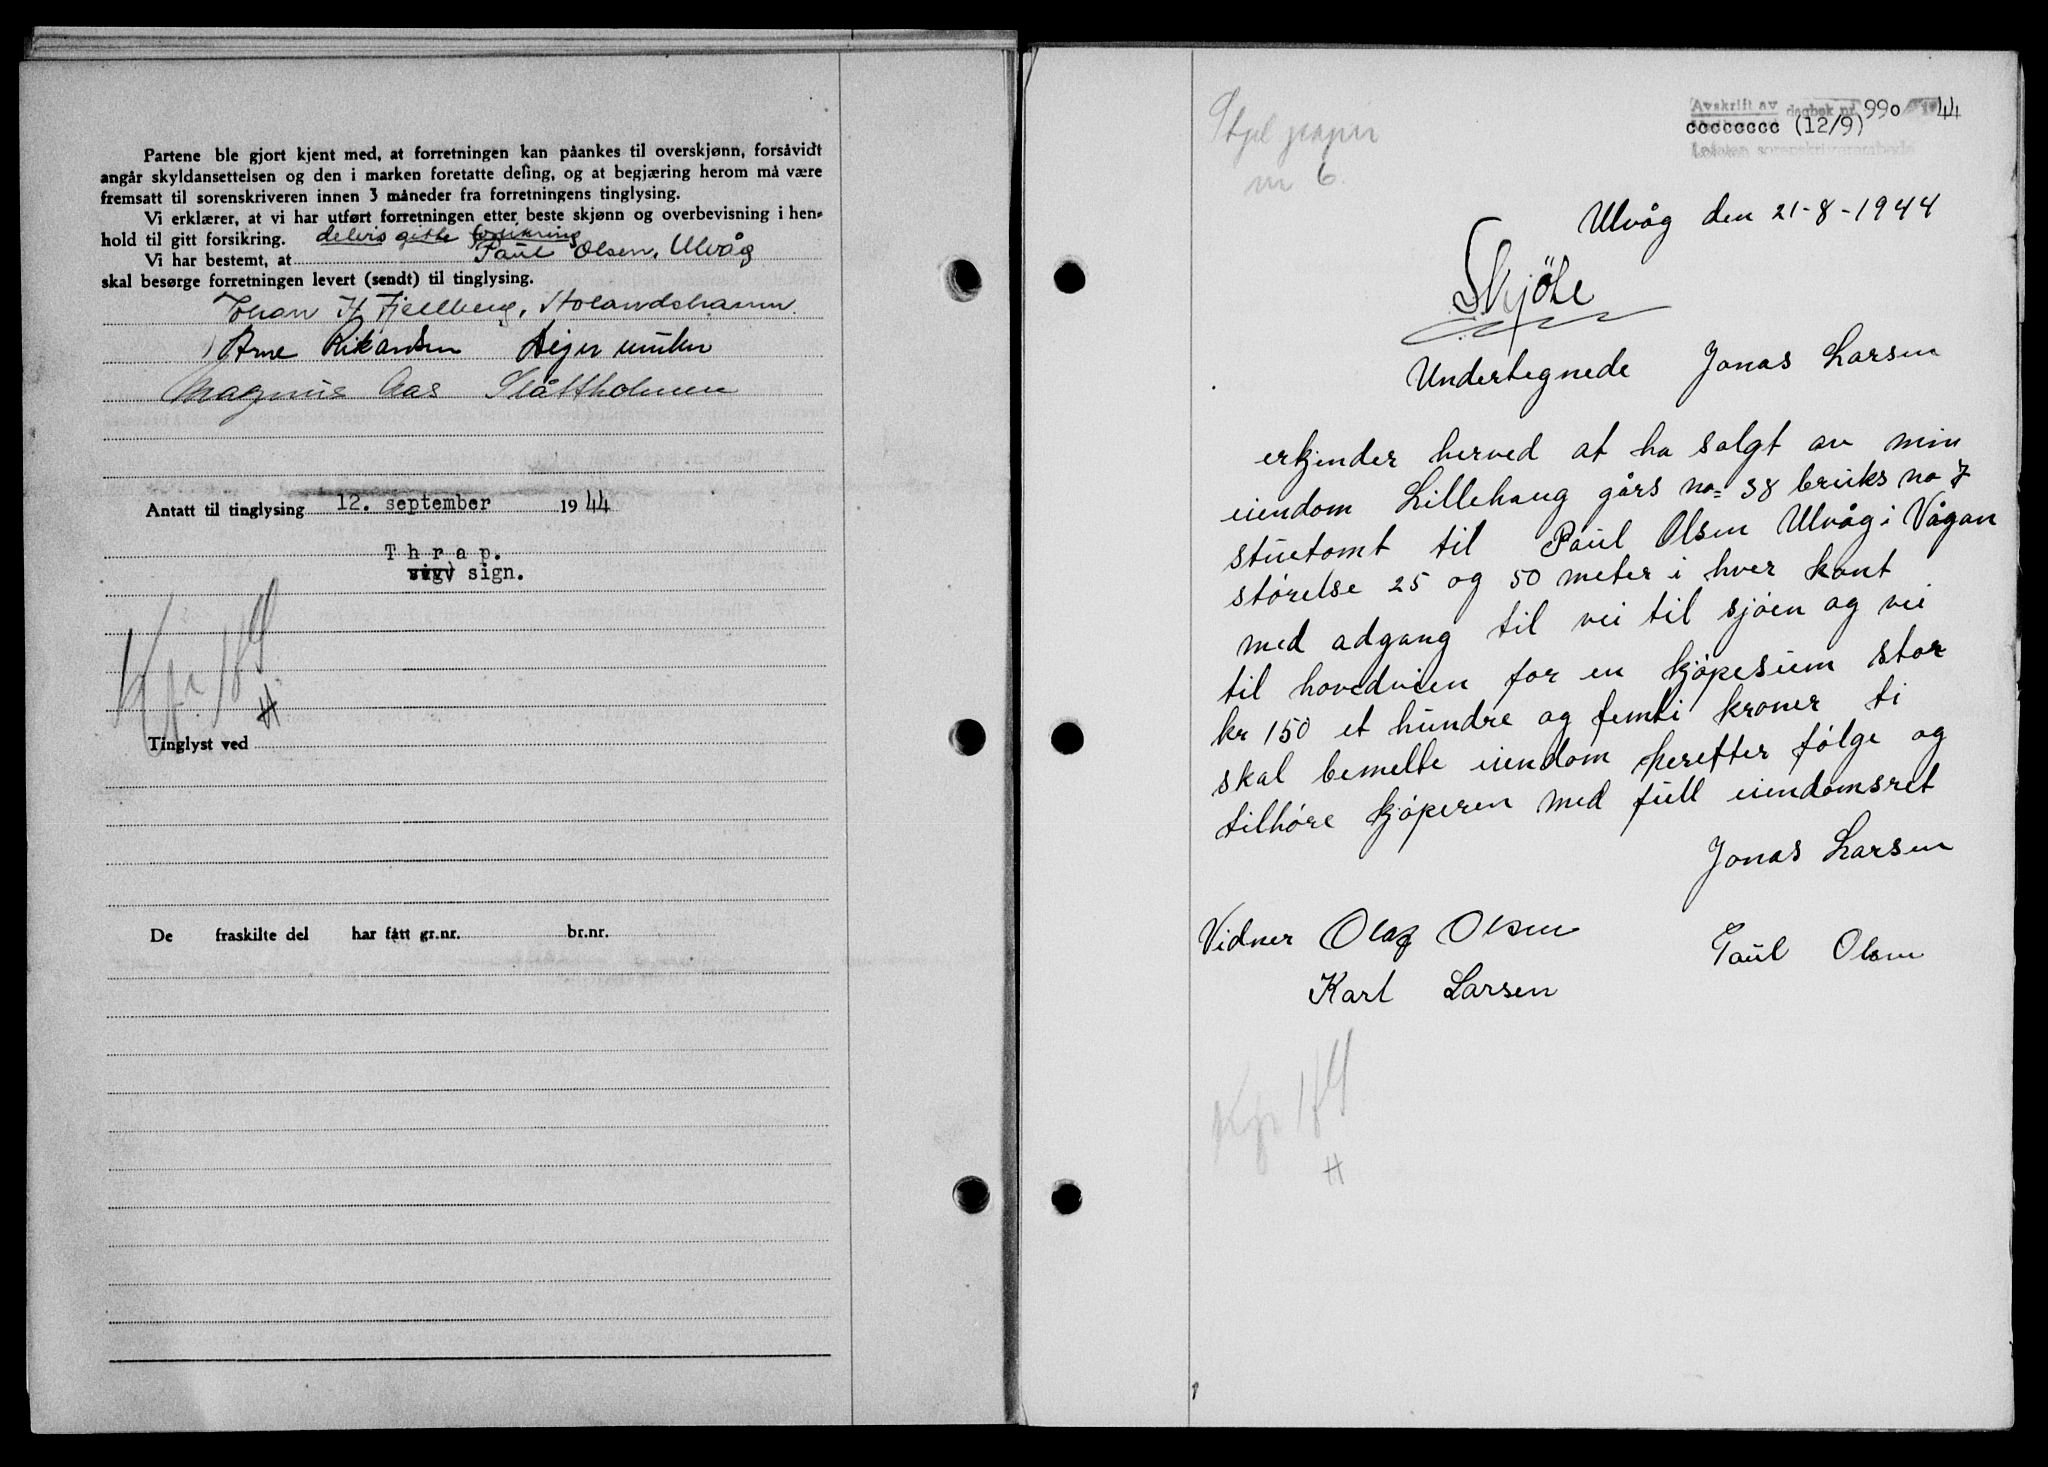 Partene ble gjort kjent med, at forretningen kan påankes til overskjønn, forsåvidt
angår skyldansettelsen og den i marken foretatte deling, og at begjæring herom må være
fremsatt til sorenskriveren innen 3 måneder fra forretningens tinglysing.
Vi erklærer, at vi har utført forretningen etter beste skjønn og overbevisning i hen-
hold til gitt forsikring. delvis gitte forsikring
Vi har bestemt, at Paul Olsen, Ulvåg
skal besørge forretningen levert (sendt) til tinglysing.
Johan H Fjellberg, Holandshamn.
Arne Rikardsen
Magnus Aas Slåttholmen
Antatt til tinglysing 12. september 1944
Thrap.
sign.
Kf. 189
H
Tinglyst ved
De fraskilte del har fått gr.nr. br.nr.
Avskrift av dagbok nr. 990 1944
cccccccc (12/9)
Lofoten sorenskriverembede
Stpl papir
nr 6.
Ulvåg den 21-8-1944
Skjöte
Undertegnede Jonas Larsen
erkjender herved at ha solgt av min
eiendom Lillehaug gårs no= 38 bruks no 7
stuetomt til Paul Olsen Ulvåg i Vågan
størelse 25 og 50 meter i hver kant
med adgang til vei til sjøen og vei
til hovedveien for en kjøpesum stor
kr 150 et hundre og femti kroner ti
skal bemelte eiendom herefter følge og
tilhøre kjøperen med full eiendomsret
Jonas Larsen
Vidner Olaf Olsen
Paul Olsen
Karl Larsen
Kf. 189
H